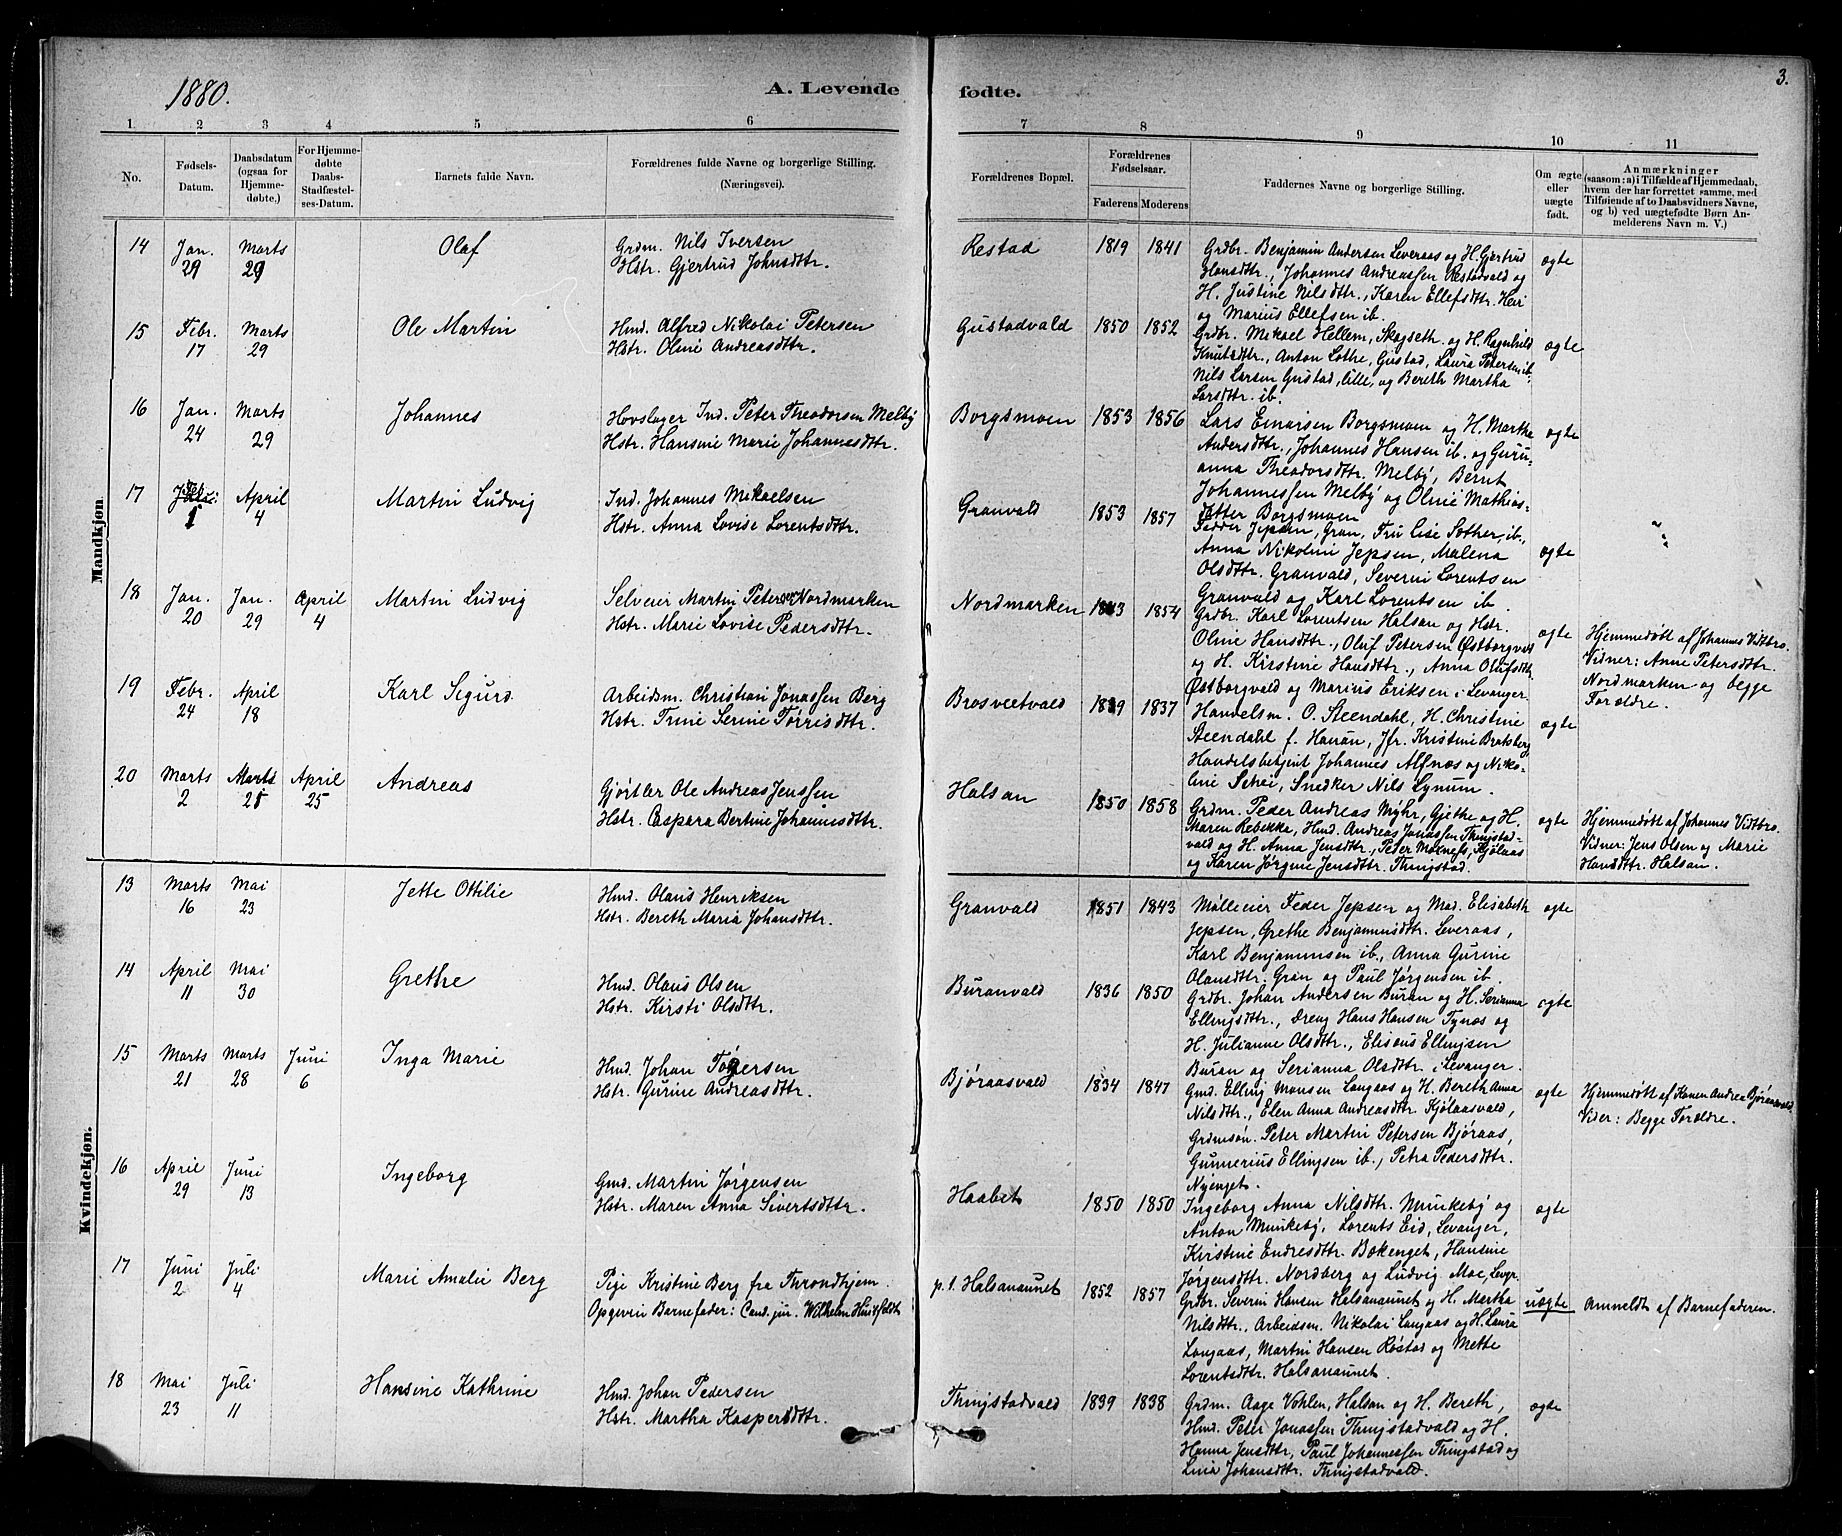 1880.
A. Levende fødte.
3.
1. 2 3 4 5 6 7 8 9 10 11
No.
Fødsels-Datum.
Daabsdatum (ogsaa for Hjemmedøbte.)
For Hjemmedøbte Daabs-Stadfæstelses-Datum.
Barnets fulde Navn.
Forældrenes fulde Navne og borgerlige Stilling. (Næringsvei).
Forældrenes Bopæl.
Forældrenes Fødselsaar.
Faderens Moderens
Faddernes Navne og borgerlige Stilling.
Om ægte eller uægte født.
Anmærkninger
(saasom: a) i Tilfælde af Hjemmedaab, hvem der har forrettet samme, med Tilføiende af to Daabsvidners Navne, og b) ved uægtefødte Børn Anmelderens Navn m. V.)
Mandkjøn.
14 Jan. 29 Marts 29 Olaf
Grdm. Nils Iversen
Hstr. Gjertrud Johnsdttr.
Restad 1819 1841
Grdbr. Benjamin Andersen Leveraas og H. Gjertrud
Hansdttr., Johannes Andreassen Restadvald og
H. Justine Nilsdttr., Karen Ellefsdttr. Heir
og Marius Ellefsen ib.
ægte
15 Febr. 17 Marts 29 Ole Martin
Hmd. Alfred Nikolai Petersen
Hstr. Oline Andreasdttr.
Gustadvald 1850 1852
Grdbr. Mikael Hellem, Skogseth. og H. Ragnhild
Knutsdttr., Anton Lothe, Gustad, Laura Petersen ib.
Nils Larsen Gustad, lille, og Bereth Martha
Larsdttr. ib.
ægte
16 Jan. 24 Marts 29 Johannes
Hovslager Ind. Peter Theodorsen Melby
Hstr. Hansine Marie Johannesdttr.
Borgsmoen 1853 1856
Lars Einarsen Borgsmoen og H. Martha
Andersdttr., Johannes Hansen ib. og Guru-
anna Theodorsdttr. Melby, Bernt
Johannessen Melby og Oline Mathias-
datter Borgsmoen
ægte
17 Feb. 1 April 4 Martin Ludvig
Ind. Johannes Mikaelsen
Hstr. Anna Lovise Lorentsdttr.
Granvald 1853 1857
Fedder Jepsen, Gran, Fru Lise Sother, ib.,
Anna Nikoline Jepsen, Malena
Olsdttr. Granvald, Severin Lorentsen
Granvald og Karl Lorentsen ib.
ægte
18 Jan. 20 Jan. 29 April 4 Martin Ludvig
Selveier Martin Petersen Nordmarken
Hstr. Marie Lovise Pedersdttr.
Nordmarken 1853 1854
Grdbr. Karl Lorentsen Halsan og Hstr.
Oline Hansdttr., Oluf Petersen Østborgvald
og H. Kirstine Hansdttr., Anna Olufsdttr.
Østborgvald og Marius Eriksen i Levanger
ægte
Hjemmedøbt af Johannes Vidtbro.
Vidner: Anne Petersdttr.
Nordmarken og begge
Forældre.
19 Febr. 24 April 18 Karl Sigurd
Arbeidsm. Christian Jonassen Berg
Hstr. Trine Serine Tørrisdttr.
Brosveetvald 1839 1837
Handelsm. O. Steendahl, H. Christine
Steendahl f. Hanan, Jfr. Kristine Bratsberg
Handelsbetjent Johannes Alfnæs og Niko-
line Schei, Snedker Nils Lynum.
ægte
20 Marts 2 Marts 21 April 25 Andreas
Gjørtler Ole Andreas Jenssen
Hstr. Caspara Bertine Johannisdttr.
Halsan 1850 1858
Grdm. Peder Andreas Myhr, Gjethe og H.
Maren Rebekka, Hmd. Andreas Jonassen Thingstad-
vald og H. Anna Jensdttr., Peter Moxness, Kjølaas
og Karen Jørgine Jensdttr. Thingstad.
ægte
Hjemmedøbt af Johannes Vidtbro.
Vidner: Jens Olsen og Marie
Hansdttr. Halsan.
Kvindekjøn.
13 Marts 16 Mai 23 Jette Ottilie
Hmd. Olaus Henriksen
Hstr. Bereth Maria Johansdttr.
Granvald 1851 1843
Mølleeier Feder Jepsen og Mad. Elisabeth
Jepsen, Grethe Benjaminsdttr. Leveraas,
Karl Benjaminsen ib., Anna Gurine
Olausdttr. Gran og Paul Jørgensen ib.
ægte
14 April 11 Mai 30 Grethe
Hmd. Olaus Olsen
Hstr. Kirsti Olsdttr.
Buranvald 1836 1850
Grdbr. Johan Andersen Buran og H. Serianna
Ellingsdttr., Dreng Hans Hansen Tynæs og
H. Julianne Olsdttr., Elisæus Ellingsen
Buran og Serianna Olsdttr. i Levanger.
ægte
15 Marts 21 Marts 28 Juni 6 Inga Marie
Hmd. Johan Tøgersen
Hstr. Gurine Andreasdttr.
Bjøraasvald 1834 1847
Gmd. Elling Monsen Langaas og H. Bereth Anna
Nilsdttr., Elen Anna Andreasdttr. Kjølaasvald,
Grdmsøn. Peter Martin Petersen Bjøraas,
Gunnerius Ellingsen ib., Petra Pedersdttr.
Nyenget.
ægte
Hjemmedøbt af Konen Andrea Bjøraasvald
Vider: Begge Forældre.
16 April 29 Juni 13 Ingeborg
Gmd. Martin Jørgensen
Hstr. Maren Anna Sivertsdttr.
Haabet 1850 1850
Ingeborg Anna Nilsdttr. Munkeby og
Anton Munkeby, Lorents Eid, Levanger,
Kirstine Endresdttr. Bøkenget, Hansine
Jørgensdttr. Nordberg og Ludvig Moe, Levgr.
ægte
17 Juni 2 Juli 4 Marie Amalie Berg
Pige Kristine Berg fra Throndhjem.
Opgiven Barnefader: Cand. jur. Wilhelm Huitfeldt
p.t. Halsanaunet 1852 1857
Grdbr. Severin Hansen Halsanaunet og H. Martha
Nilsdttr., Arbeidsm. Nikolai Langaas og H. Laura
Langaas, Martin Hansen Røstad og Mette
Lorentsdttr. Halsanaunet.
uægte
Anmeldt af Barnefaderen.
18 Mai 23 Juli 11 Hansine Kathrine
Hmd. Johan Pedersen
Hstr. Martha Kaspersdttr.
Thingstadvald 1839 1838
Grdm. Aage Vohlen, Halsan og H. Bereth,
Hmd. Peter Jonassen Thingstadvald og H.
Hanna Jensdttr, Paul Johannessen Thingstad og
Lina Johansdttr. Thingstadvald.
ægte